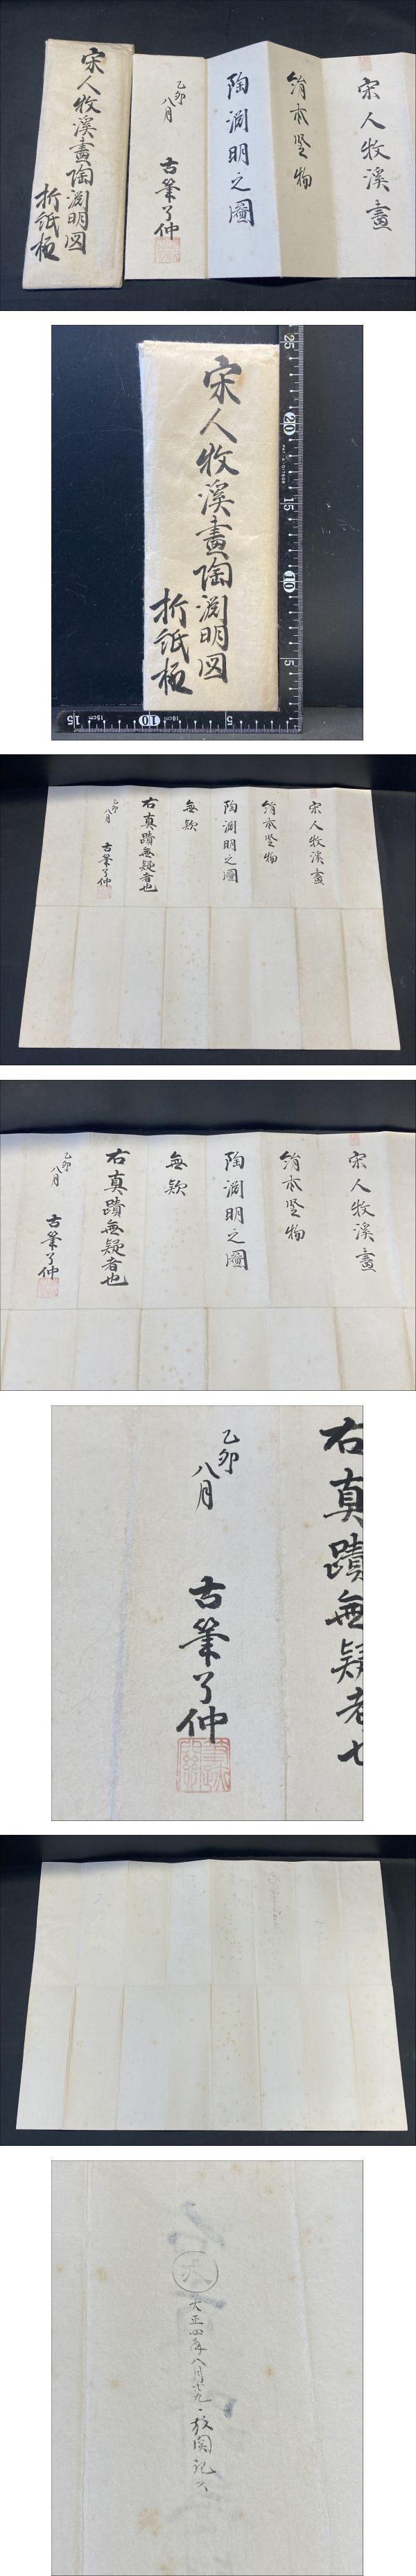 宋人牧溪畫陶淵明図
折紙極
宋人牧溪畫
絹本竪物
陶淵明之圖
乙卯
八月
古筆了仲
宋人牧溪畫陶淵明図
折紙極
25
20
15
10
5
15
10
5
宋人牧溪畫
絹本竪物
陶淵明之圖
無欵
右真蹟無疑者也
乙卯
八月
古筆了仲
宋人牧溪畫
絹本竪物
陶淵明之圖
無欵
右真蹟無疑者也
乙卯
八月
古筆了仲
右真蹟無疑者也
乙卯
八月
古筆了仲
大正四年八月